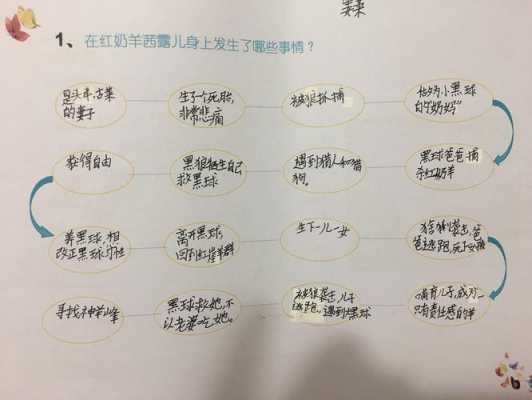 1、在红奶羊茜露儿身上发生了哪些事情？
是头羊古莱
的妻子
生了个死胎,
非常悲痛
被狼抓捕
成为小黑球
的“奶妈”
获得自由
黑狼牺牲自己
救黑球
遇到猎人和猎
狗。
黑球爸爸捕
杀红奶羊
养黑球,想
改正黑球习性
离开黑球,
回到红崖羊群
生下一儿一女
逃跑,死于
寻找神羊峰
黑球救她,不
让老婆吃她。
被狼袭击,儿子
逃跑。遇到黑球
哺育儿子,成为一
只有责任感的羊